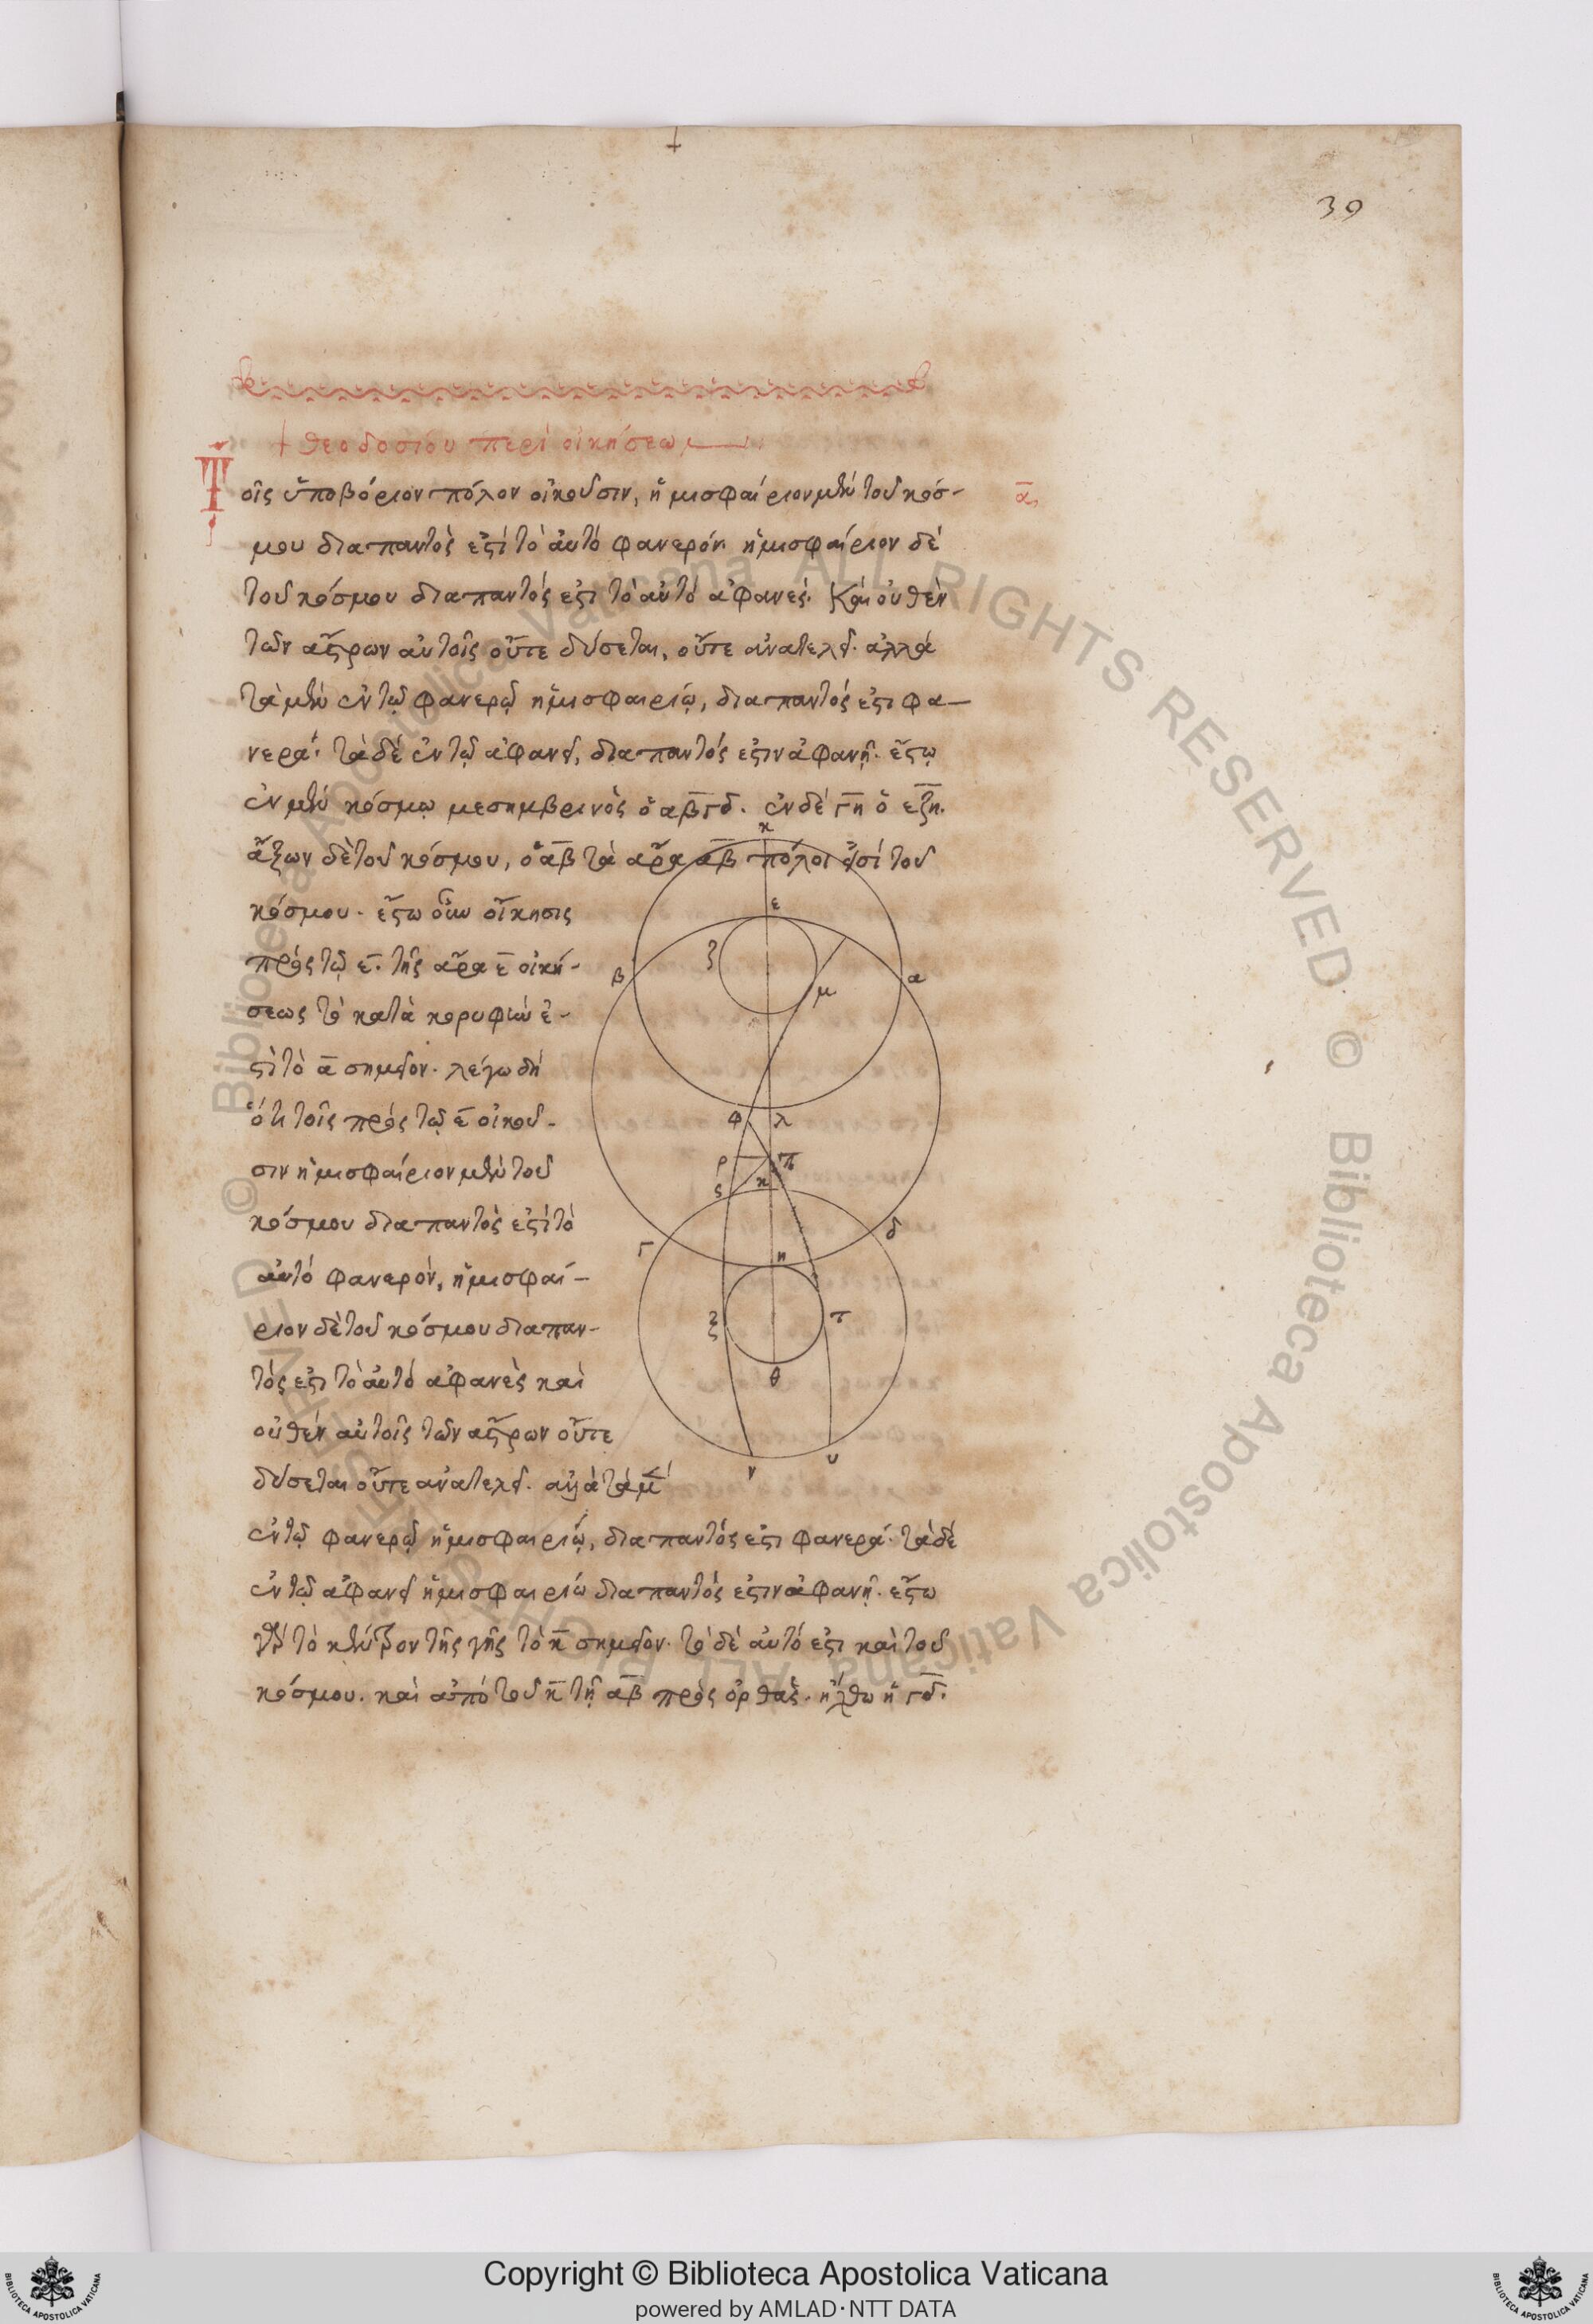 39
+ θεοδοσίου περὶ οἰκήσεων
Τοῖς ὑπὸ βόρειον πόλον οἰκοῦσιν, ἡμισφαίριον μὲν τοῦ κόσ- ᾱ
μου διαπαντὸς ἐστὶ τὸ αὐτὸ φανερόν· ἡμισφαίριον δὲ
τοῦ κόσμου διαπαντός ἐστι τὸ αὐτὸ ἀφανές. καὶ οὐθὲν
τῶν ἄστρων αὐτοῖς οὔτε δύσεται, οὔτε ἀνατελεῖ. ἀλλὰ
τὰ μὲν ἐν τῷ φανερῷ ἡμισφαιρίῳ, διαπαντός ἐστι φα-
νερά· τὰ δὲ ἐν τῷ ἀφανεῖ, διαπαντός ἐστιν ἀφανῆ. ἔστω
ἐν μὲν κόσμῳ μεσημβρινὸς ὁ αβγδ. ἐν δὲ γῇ ὁ εζη.
ἄξων δὲ τοῦ κόσμου, ὁ αβ τὰ ἄρα αβ πόλοι εἰσὶ τοῦ
κόσμου. ἔστω οὖν οἴκησις
πρὸς τῷ ε̄. τῆς ἄρα ε̄ οἰκή-
σεως τὸ κατὰ κορυφὴν ἐ-
στὶ τὸ ᾱ σημεῖον. λέγω δὴ
ὅτι τοῖς πρὸς τῷ ε̄ οἰκοῦ-
σιν ἡμισφαίριον μὲν τοῦ
κόσμου διαπαντὸς ἐστὶ τὸ
αὐτὸ φανερόν, ἡμισφαί-
ριον δὲ τοῦ κόσμου διαπαν-
τός ἐστι τὸ αὐτὸ ἀφανὲς καὶ
οὐθὲν αὐτοῖς τῶν ἄστρων οὔτε
δύσεται οὔτε ἀνατελεῖ. ἀλλὰ τὰ μὲν
ἐν τῷ φανερῷ ἡμισφαιρίῳ, διαπαντός ἐστι φανερά. τὰ δὲ
ἐν τῷ ἀφανεῖ ἡμισφαιρίω διαπαντός ἐστιν ἀφανῆ. ἔστω
γὰρ τὸ κέντρον τῆς γῆς τὸ κ̄ σημεῖον. τὸ δὲ αὐτό ἐστι καὶ τοῦ
κόσμου. καὶ ἀπὸ τοῦ κ̄ τῇ αβ πρὸς ὀρθὰς. ἤχθω ἡ γδ.
κ
ε
ζ
β
α
μ
φ
λ
ρ
π
ς
κ
γ
δ
η
ξ
τ
θ
ν
υ
© Biblioteca Apostolica Vaticana ALL RIGHTS RESERVED
© Biblioteca Apostolica Vaticana ALL RIGHTS RESERVED
BIBLIOTECA APOSTOLICA VATICANA
Copyright © Biblioteca Apostolica Vaticana
powered by AMLAD·NTT DATA
BIBLIOTECA APOSTOLICA VATICANA